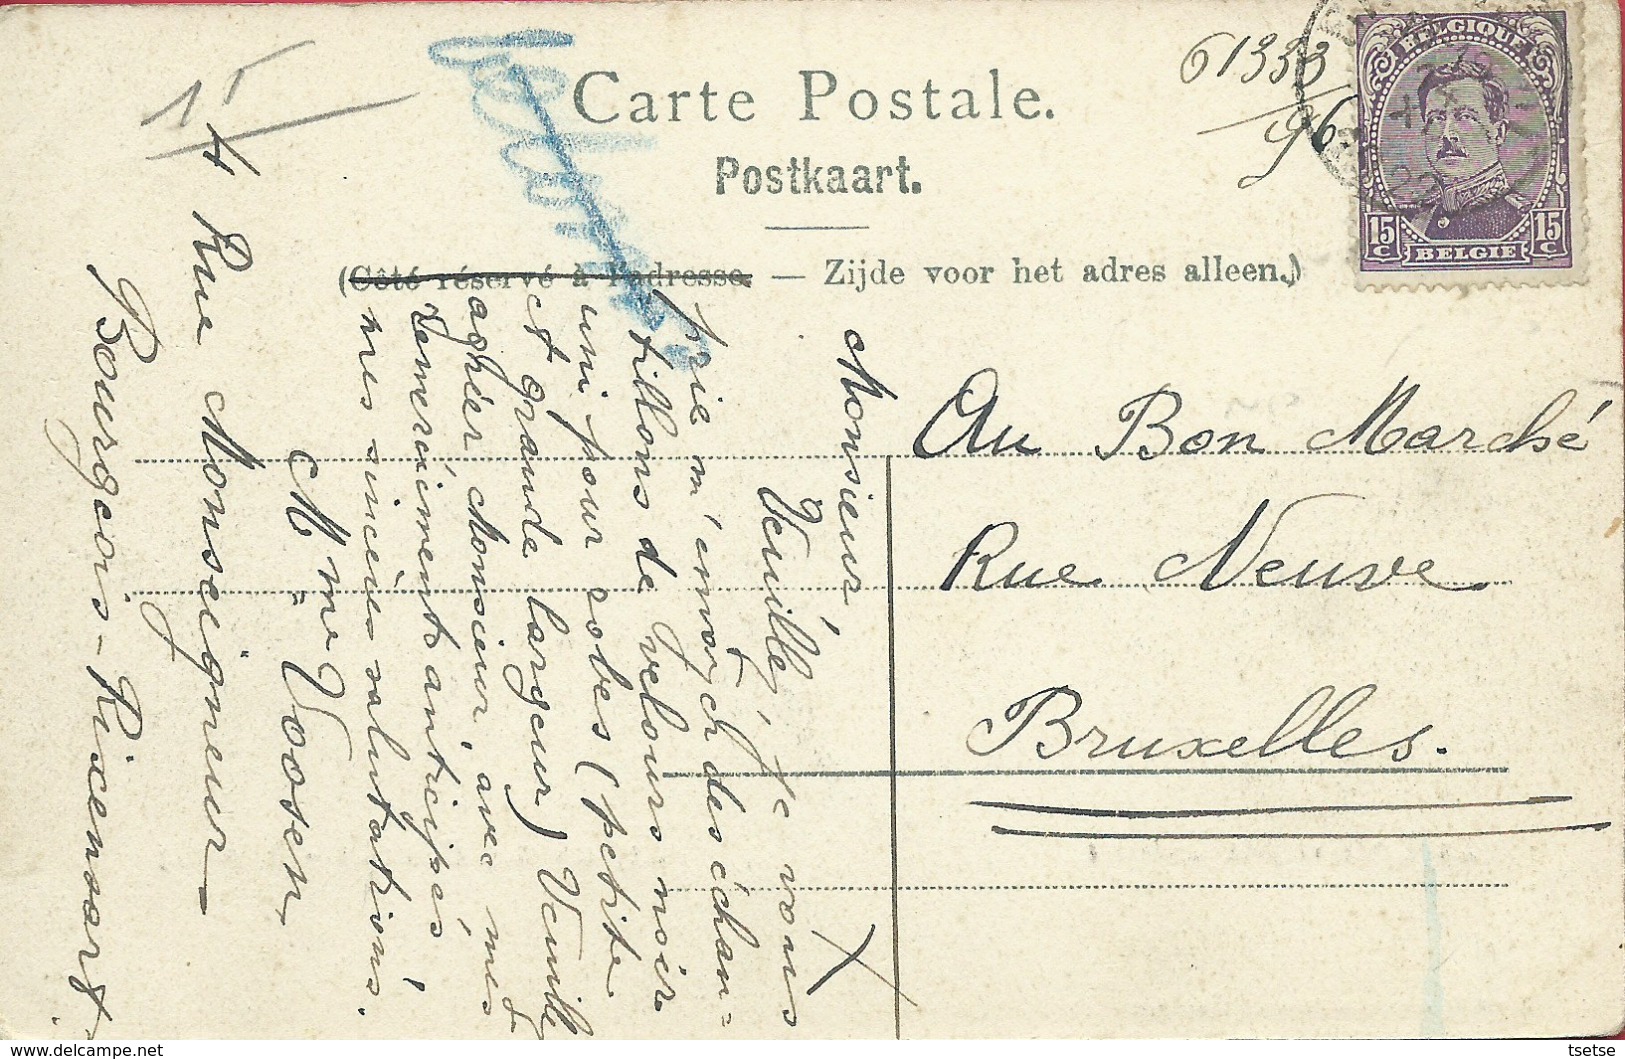 Carte Postale.
Postkaart.
(Côté réservé à l'adresse. — Zijde voor het adres alleen.)
61333
96
BELGIQUE
15 C
15 C
BELGIE
Au Bon Marché
Rue Neuve
Bruxelles.
Monsieur
Veuillez, je vous
prie m'envoyer des échan-
tillons de velours noir
uni pour robes (petite
et grande largeur) Veuillez
agréer Monsieur, avec mes
remerciements anticipés
mes sincères salutations.
Mme Voosen
4 Rue Monseigneur
Bourgeois-Rixensart.
tsetse